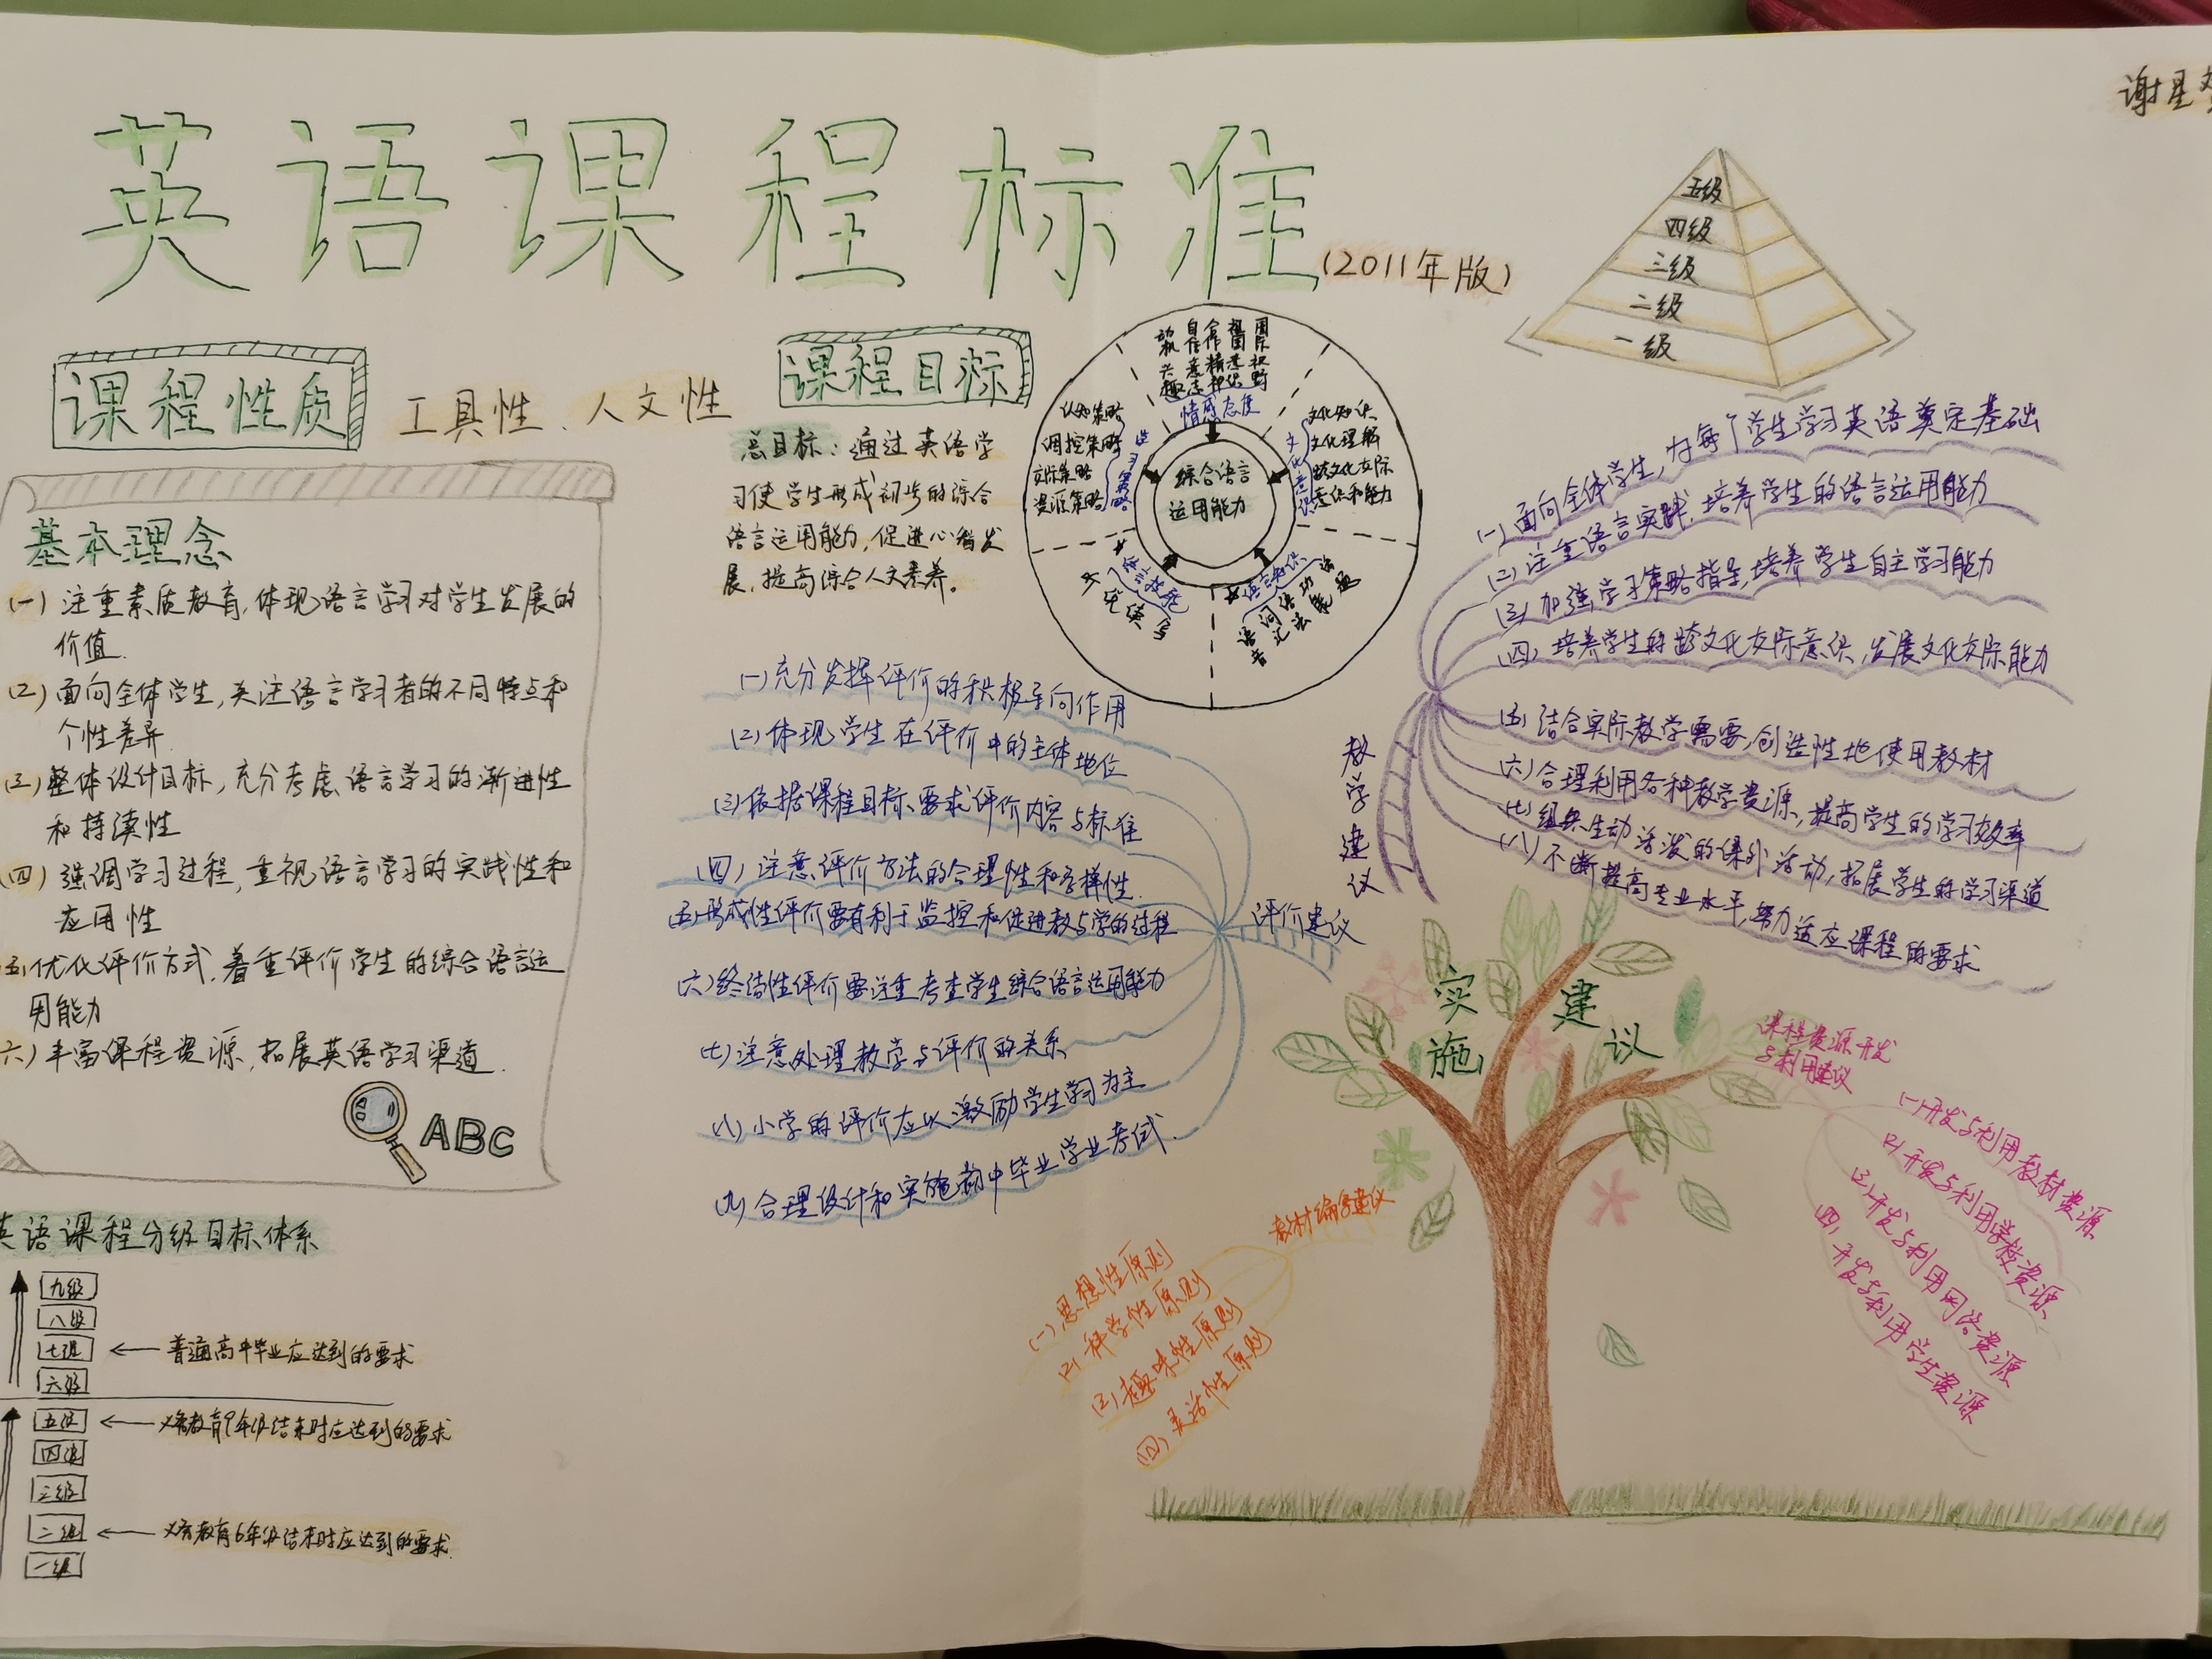 英语课程标准
(2011年版)
谢星
五级
四级
三级
二级
一级
课程性质
工具性、人文性
基本理念
(一) 注重素质教育,体现语言学习对学生发展的
价值.
(二) 面向全体学生,关注语言学习者的不同特点和
个性差异.
(三) 整体设计目标,充分考虑语言学习的渐进性
和持续性
(四) 强调学习过程,重视语言学习的实践性和
应用性
五) 优化评价方式,着重评价学生的综合语言运
用能力
六) 丰富课程资源,拓展英语学习渠道.
ABC
英语课程分级目标体系
九级
八级
七级
普通高中毕业应达到的要求
六级
五级
义务教育9年级结束时应达到的要求
四级
三级
二级
义务教育6年级结束时应达到的要求.
一级
课程目标
总目标:通过英语学
习使学生形成初步的综合
语言运用能力,促进心智发
展,提高综合人文素养。
综合语言
运用能力
情感态度
动机兴趣
自信意志
合作精神
祖国意识
国际视野
文化意识
文化知识
文化理解
跨文化交际
意识和能力
语言知识
语音
词汇
语法
功能
话题
语言技能
听
说
读
写
学习策略
认知策略
调控策略
交际策略
资源策略
实施建议
教学建议
(一) 面向全体学生,为每个学生学习英语奠定基础
(二) 注重语言实践,培养学生的语言运用能力
(三) 加强学习策略指导,培养学生自主学习能力
(四) 培养学生的跨文化交际意识,发展文化交际能力
(五) 结合实际教学需要,创造性地使用教材
(六) 合理利用各种教学资源,提高学生的学习效率
(七) 组织生动活泼的课外活动,拓展学生的学习渠道
(八) 不断提高专业水平,努力适应课程的要求
评价建议
(一) 充分发挥评价的积极导向作用
(二) 体现学生在评价中的主体地位
(三) 依据课程目标要求评价内容与标准
(四) 注意评价方法的合理性和多样性.
(五) 形成性评价要有利于监控和促进教与学的过程
(六) 终结性评价要注重考查学生综合语言运用能力
(七) 注意处理教学与评价的关系
(八) 小学的评价应以激励学生学习为主
(九) 合理设计和实施初中毕业学业考试.
教材编写建议
(一) 思想性原则
(二) 科学性原则
(三) 趣味性原则
(四) 灵活性原则
课程资源开发
与利用建议
(一) 开发与利用教材资源
(二) 开发与利用学校资源
(三) 开发与利用网络资源
(四) 开发与利用学生资源